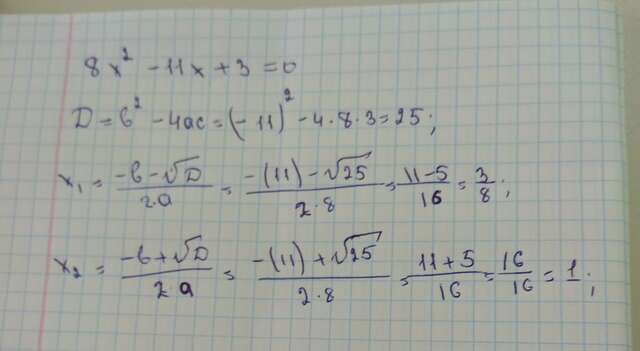 8x² - 11x + 3 = 0
D = b² - 4ac = (-11)² - 4·8·3 = 25;
x₁ = (-b - √D)/(2·a) = (-(11) - √25)/(2·8) = (11 - 5)/16 = 3/8;
x₂ = (-b + √D)/(2·a) = (-(11) + √25)/(2·8) = (11 + 5)/16 = 16/16 = 1;